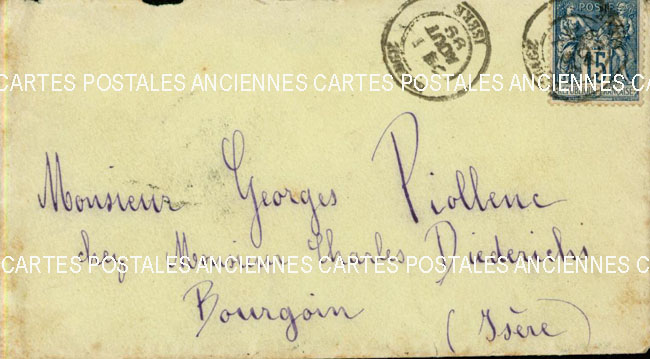 POSTE
15
ISERE
AOUT
CARTES POSTALES ANCIENNES CARTES POSTALES ANCIENNES
Monsieur Georges Piollenc
chez Monsieur Charles Diederichs
CARTES POSTALES ANCIENNES CARTES POSTALES ANCIENNES
Bourgoin (Isère)